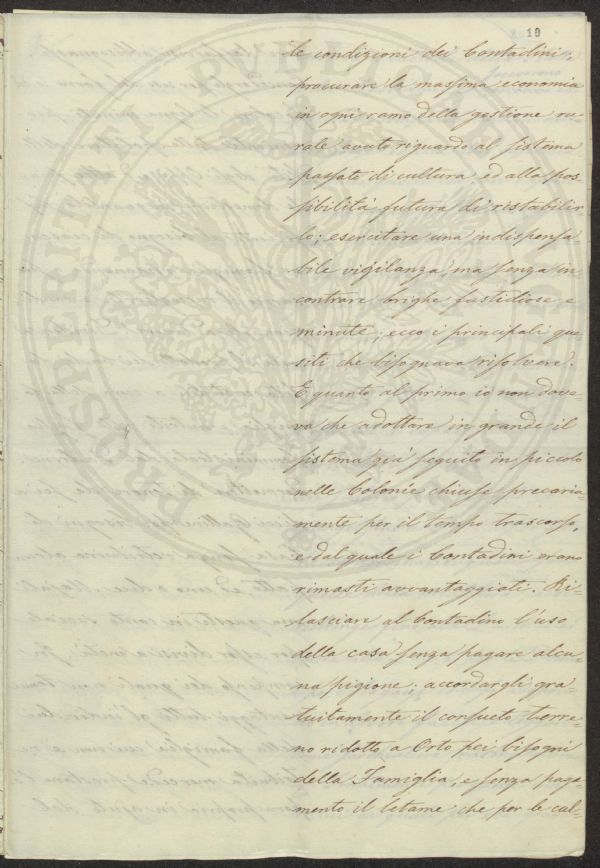 10
le condizioni dei Contadini;
procurare la massima economia
in ogni ramo della gestione ru-
rale avuto riguardo al sistema
passato di cultura ed alla pos-
sibilità futura di ristabilir-
lo; esercitare una indispensa-
bile vigilanza, ma senza in-
contrare brighe fastidiose e
minute; ecco i principali que-
siti che bisognava risolvere.
E quanto al primo io non dove-
va che adottare in grande il
sistema già seguito in piccolo
nelle Colonie chiuse precaria-
mente per il tempo trascorso,
e dal quale i Contadini erano
rimasti avvantaggiati. Ri-
lasciare al Contadino l'uso
della casa senza pagare alcu-
na pigione; accordargli gra-
tuitamente il consueto terre-
no ridotto a Orto pei bisogni
della Famiglia, e senza paga-
mento il letame che per le cul-
PROSPERITATI PVBLICAE